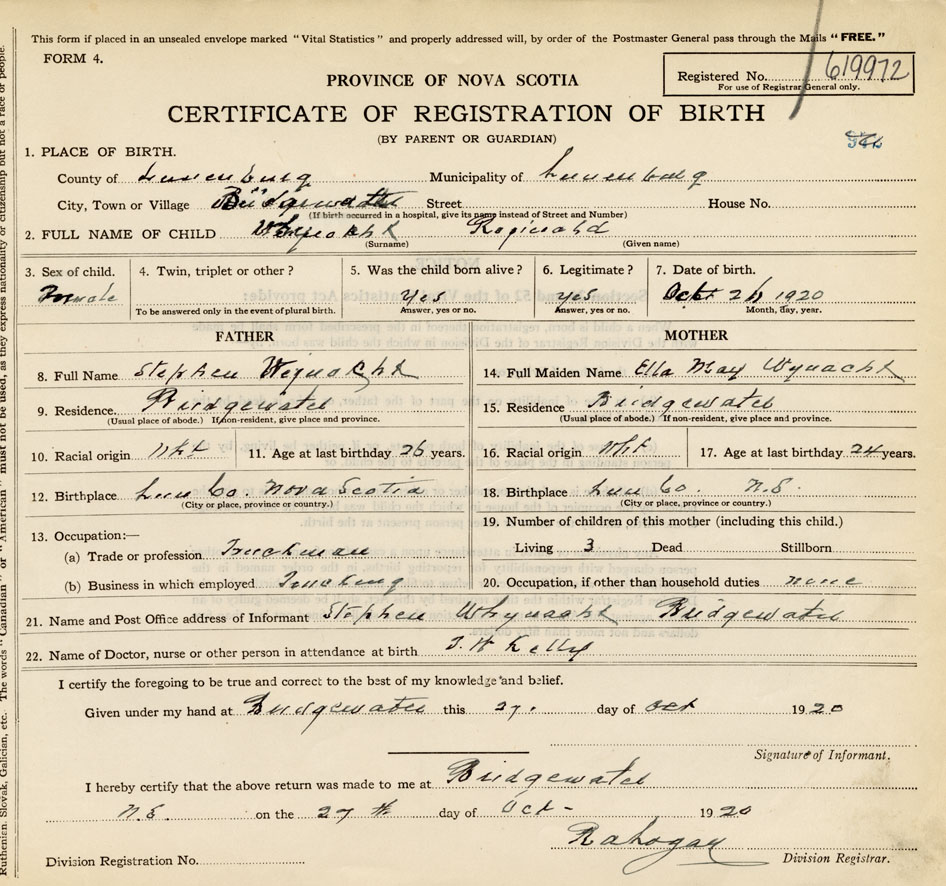 This form if placed in an unsealed envelope marked "Vital Statistics" and properly addressed will, by order of the Postmaster General pass through the Mails "FREE."
FORM 4.
Registered No. 619972
For use of Registrar General only.
PROVINCE OF NOVA SCOTIA
CERTIFICATE OF REGISTRATION OF BIRTH
(BY PARENT OR GUARDIAN)
1. PLACE OF BIRTH.
County of Lunenburg Municipality of Lunenburg
City, Town or Village Bridgewater Street House No.
(If birth occurred in a hospital, give its name instead of Street and Number)
2. FULL NAME OF CHILD Whynacht Reginald
(Surname) (Given name)
3. Sex of child. 4. Twin, triplet or other? 5. Was the child born alive? 6. Legitimate? 7. Date of birth.
Yes Yes Oct 26 1920
To be answered only in the event of plural birth. Answer, yes or no. Answer, yes or no. Month, day, year.
FATHER MOTHER
8. Full Name Stephen Wynacht 14. Full Maiden Name Ella May Wynacht
9. Residence Bridgewater 15. Residence Bridgewater
(Usual place of abode.) If non-resident, give place and province. (Usual place of abode.) If non-resident, give place and province.
10. Racial origin Wht 11. Age at last birthday 26 years. 16. Racial origin Wht 17. Age at last birthday 24 years.
12. Birthplace Lun Co. Nova Scotia 18. Birthplace Lun Co. N.S.
(City or place, province or country.) (City or place, province or country.)
13. Occupation:— 19. Number of children of this mother (including this child.)
(a) Trade or profession Truckman Living 3 Dead Stillborn
(b) Business in which employed Trucking 20. Occupation, if other than household duties none
21. Name and Post Office address of Informant Stephen Whynacht Bridgewater
22. Name of Doctor, nurse or other person in attendance at birth
I certify the foregoing to be true and correct to the best of my knowledge and belief.
Given under my hand at Bridgewater this 27. day of Oct 1920
Signature of Informant.
I hereby certify that the above return was made to me at Bridgewater
N.S. on the 27th day of Oct - 1920
Division Registration No. Division Registrar.
The words "Canadian" or "American" must not be used, as they express nationality or citizenship but not a race or people.
Ruthenian, Slovak, Galician, etc.